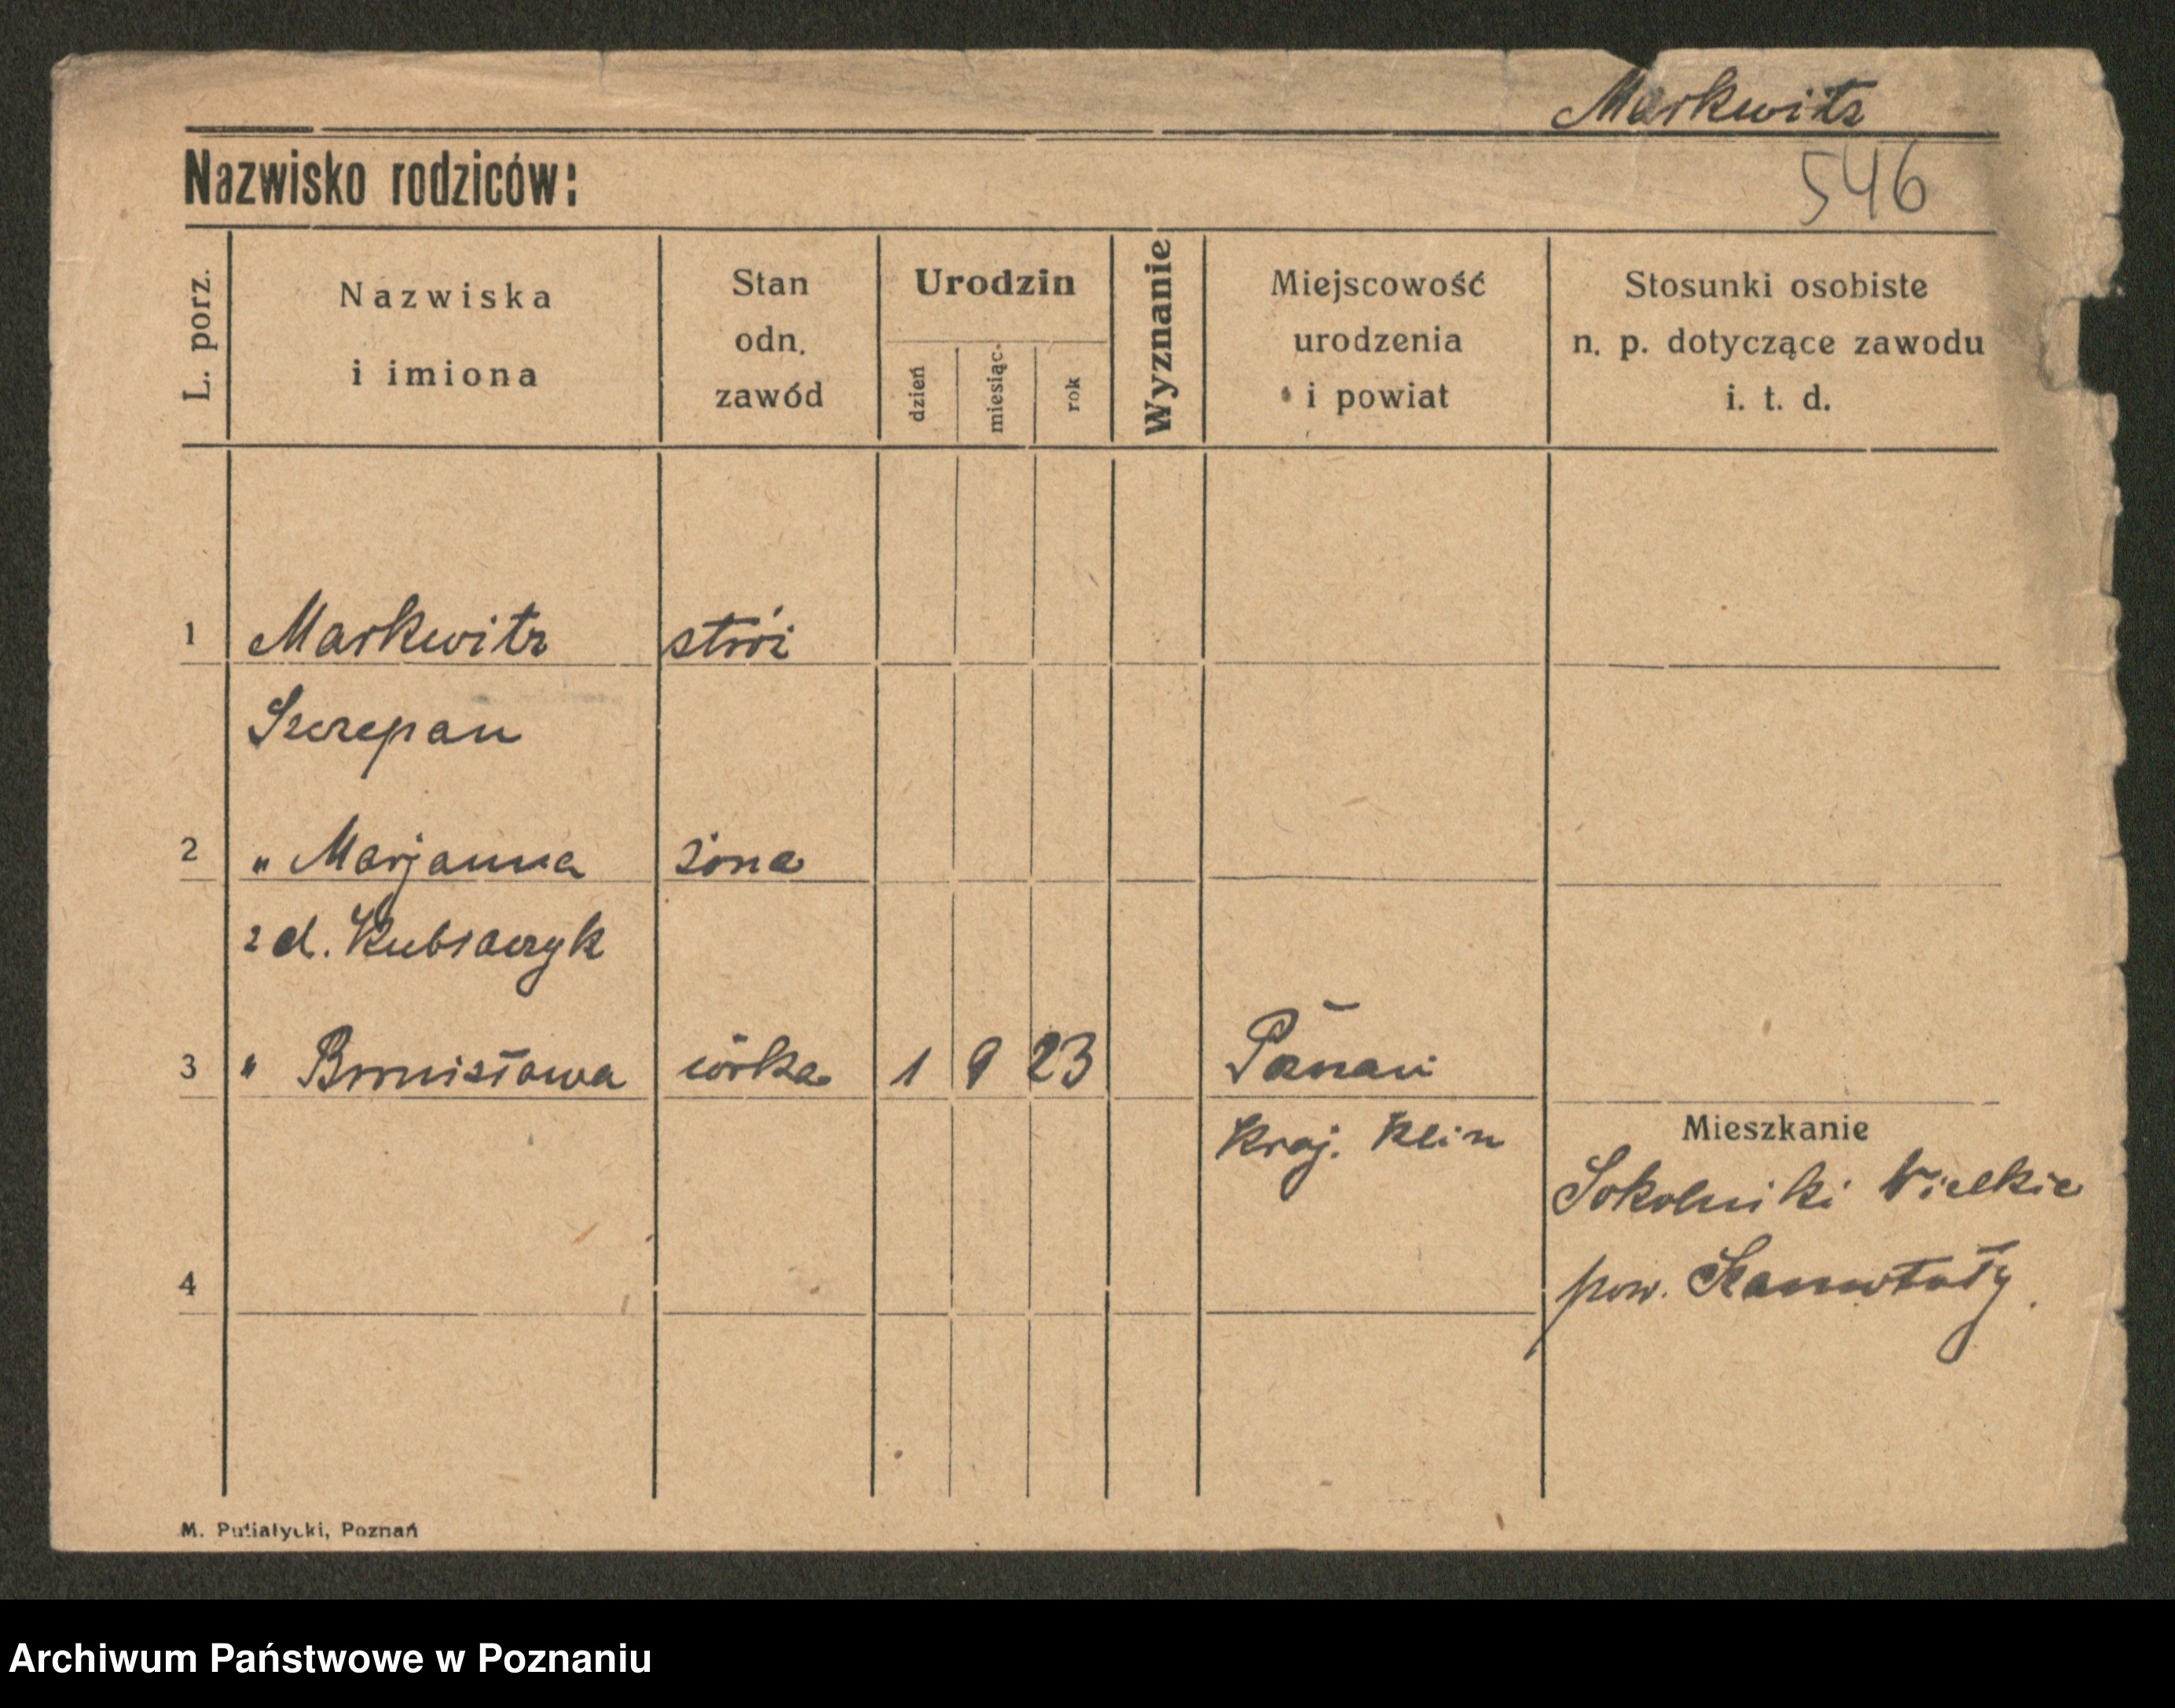 Markwitz
Nazwisko rodziców:
546
L. porz.
Nazwiska
i imiona
Stan
odn.
zawód
Urodzin
dzień
miesiąc
rok
Wyznanie
Miejscowość
urodzenia
i powiat
Stosunki osobiste
n. p. dotyczące zawodu
i. t. d.
1 Markwitz stróż
Szczepan
2 " Marjanna żona
z d. Kubiaczyk
3 " Bronisława córka 1 9 23 Poznań
Kraj. Klin
Mieszkanie
Sokolniki Wielkie
4
pow. Szamotuły.
M. Putiatycki, Poznań
Archiwum Państwowe w Poznaniu